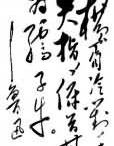 横眉冷對
夫指,俯首甘
为孺子牛。
——鲁迅